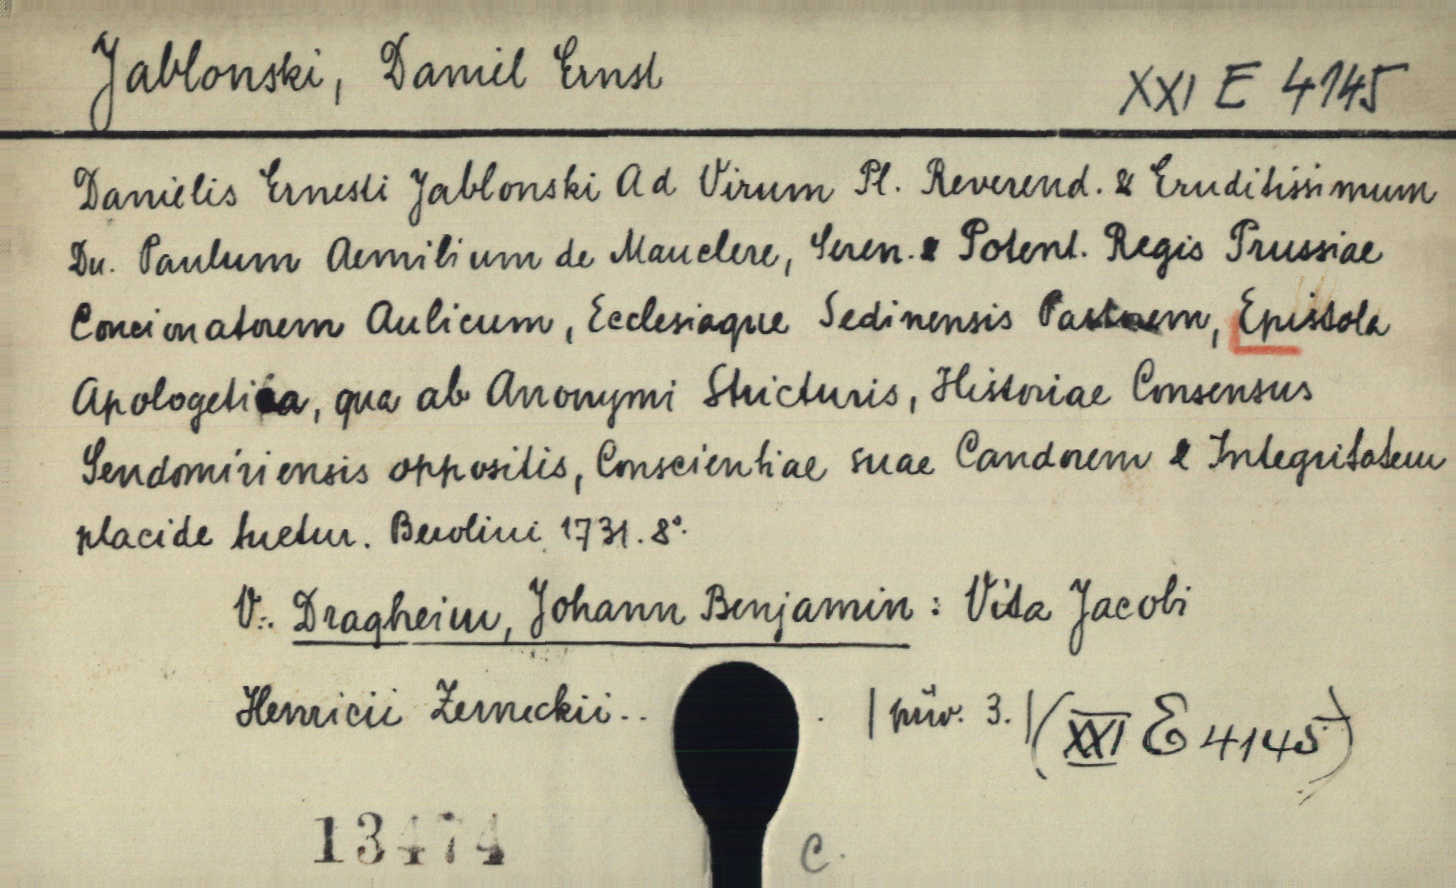 Jablonski, Daniel Ernst
XXI E 4145
Danielis Ernesti Jablonski Ad Virum Pl. Reverend. & Eruditissimum
Dn. Paulum Aemilium de Mauclere, Seren. & Potent. Regis Prussiae
Concionatorem Aulicum, Ecclesiaque Sedinensis Pastorem, Epistola
Apologetica, qua ab Anonymi Stricturis, Historiae Consensus
Sendomiriensis oppositis, Conscientiae suae Candorem & Integritatem
placide tuetur. Berolini 1731. 8°.
V.: Dragheim, Johann Benjamin : Vita Jacobi
Henricii Zerneckii.. . | přív. 3. | (XXI E 4145)
13474
C.